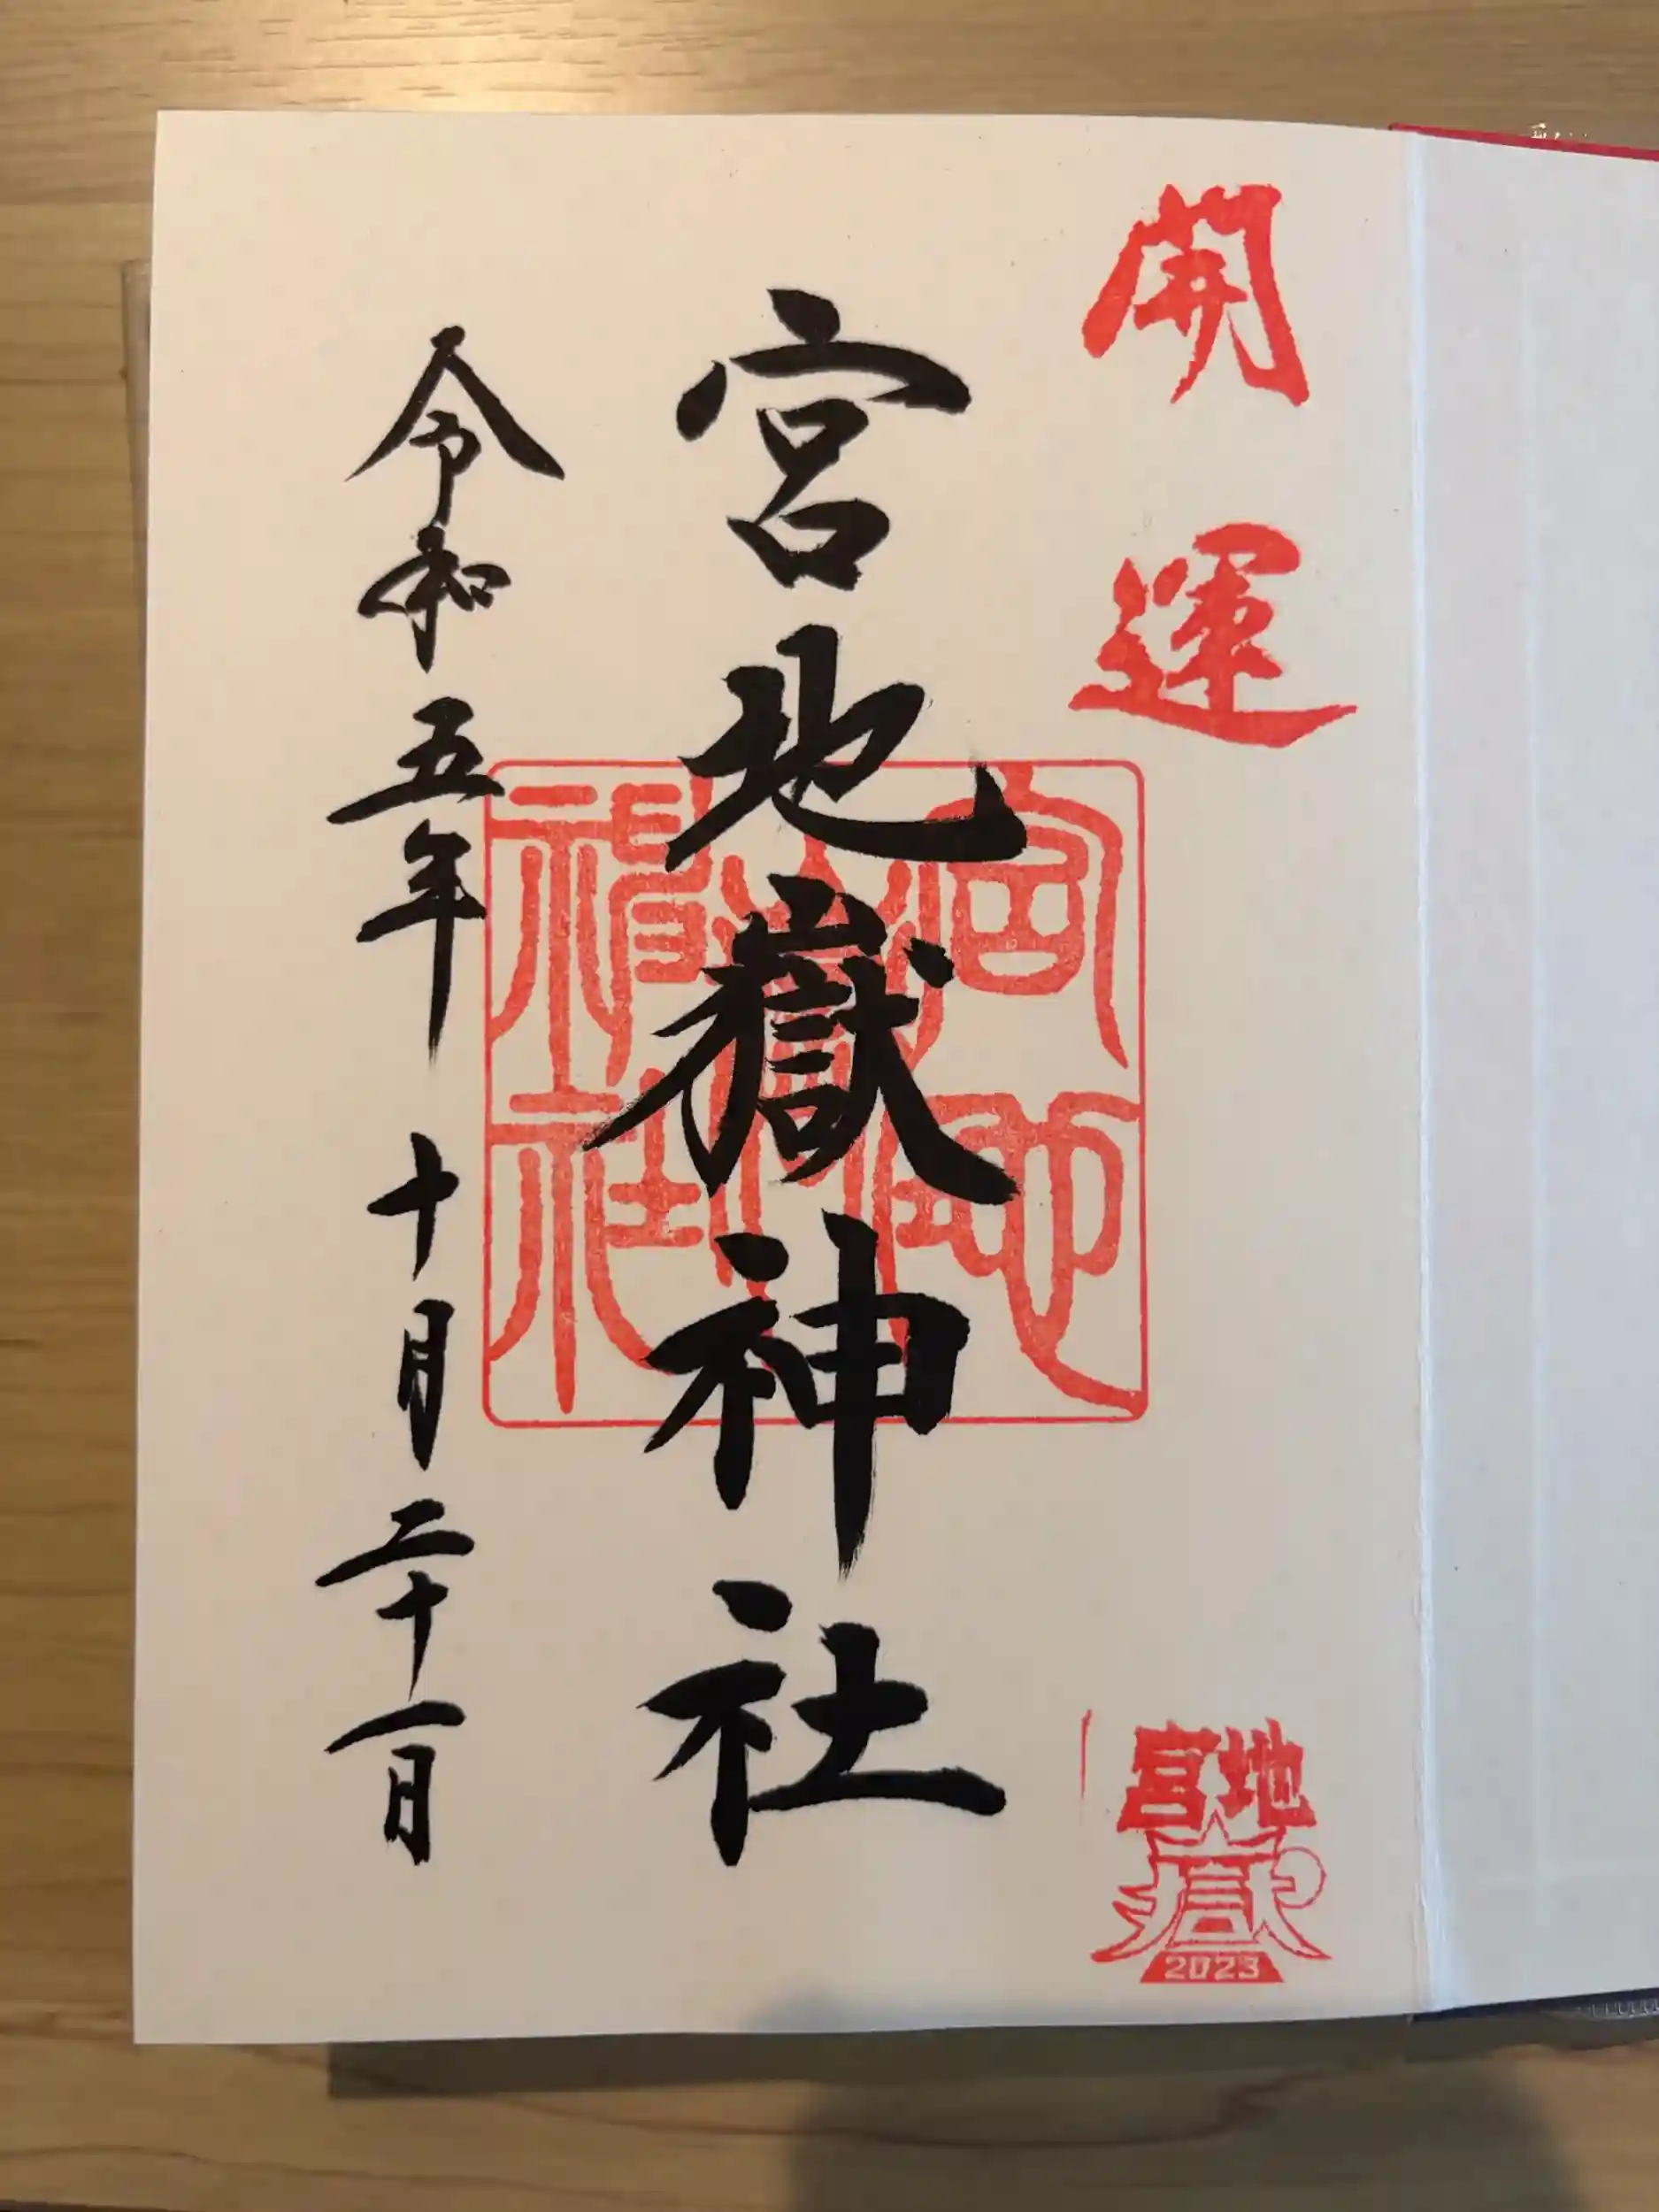 開運
宮地嶽
2023
宮地嶽神社
宮地嶽神社
令和五年 十月二十一日